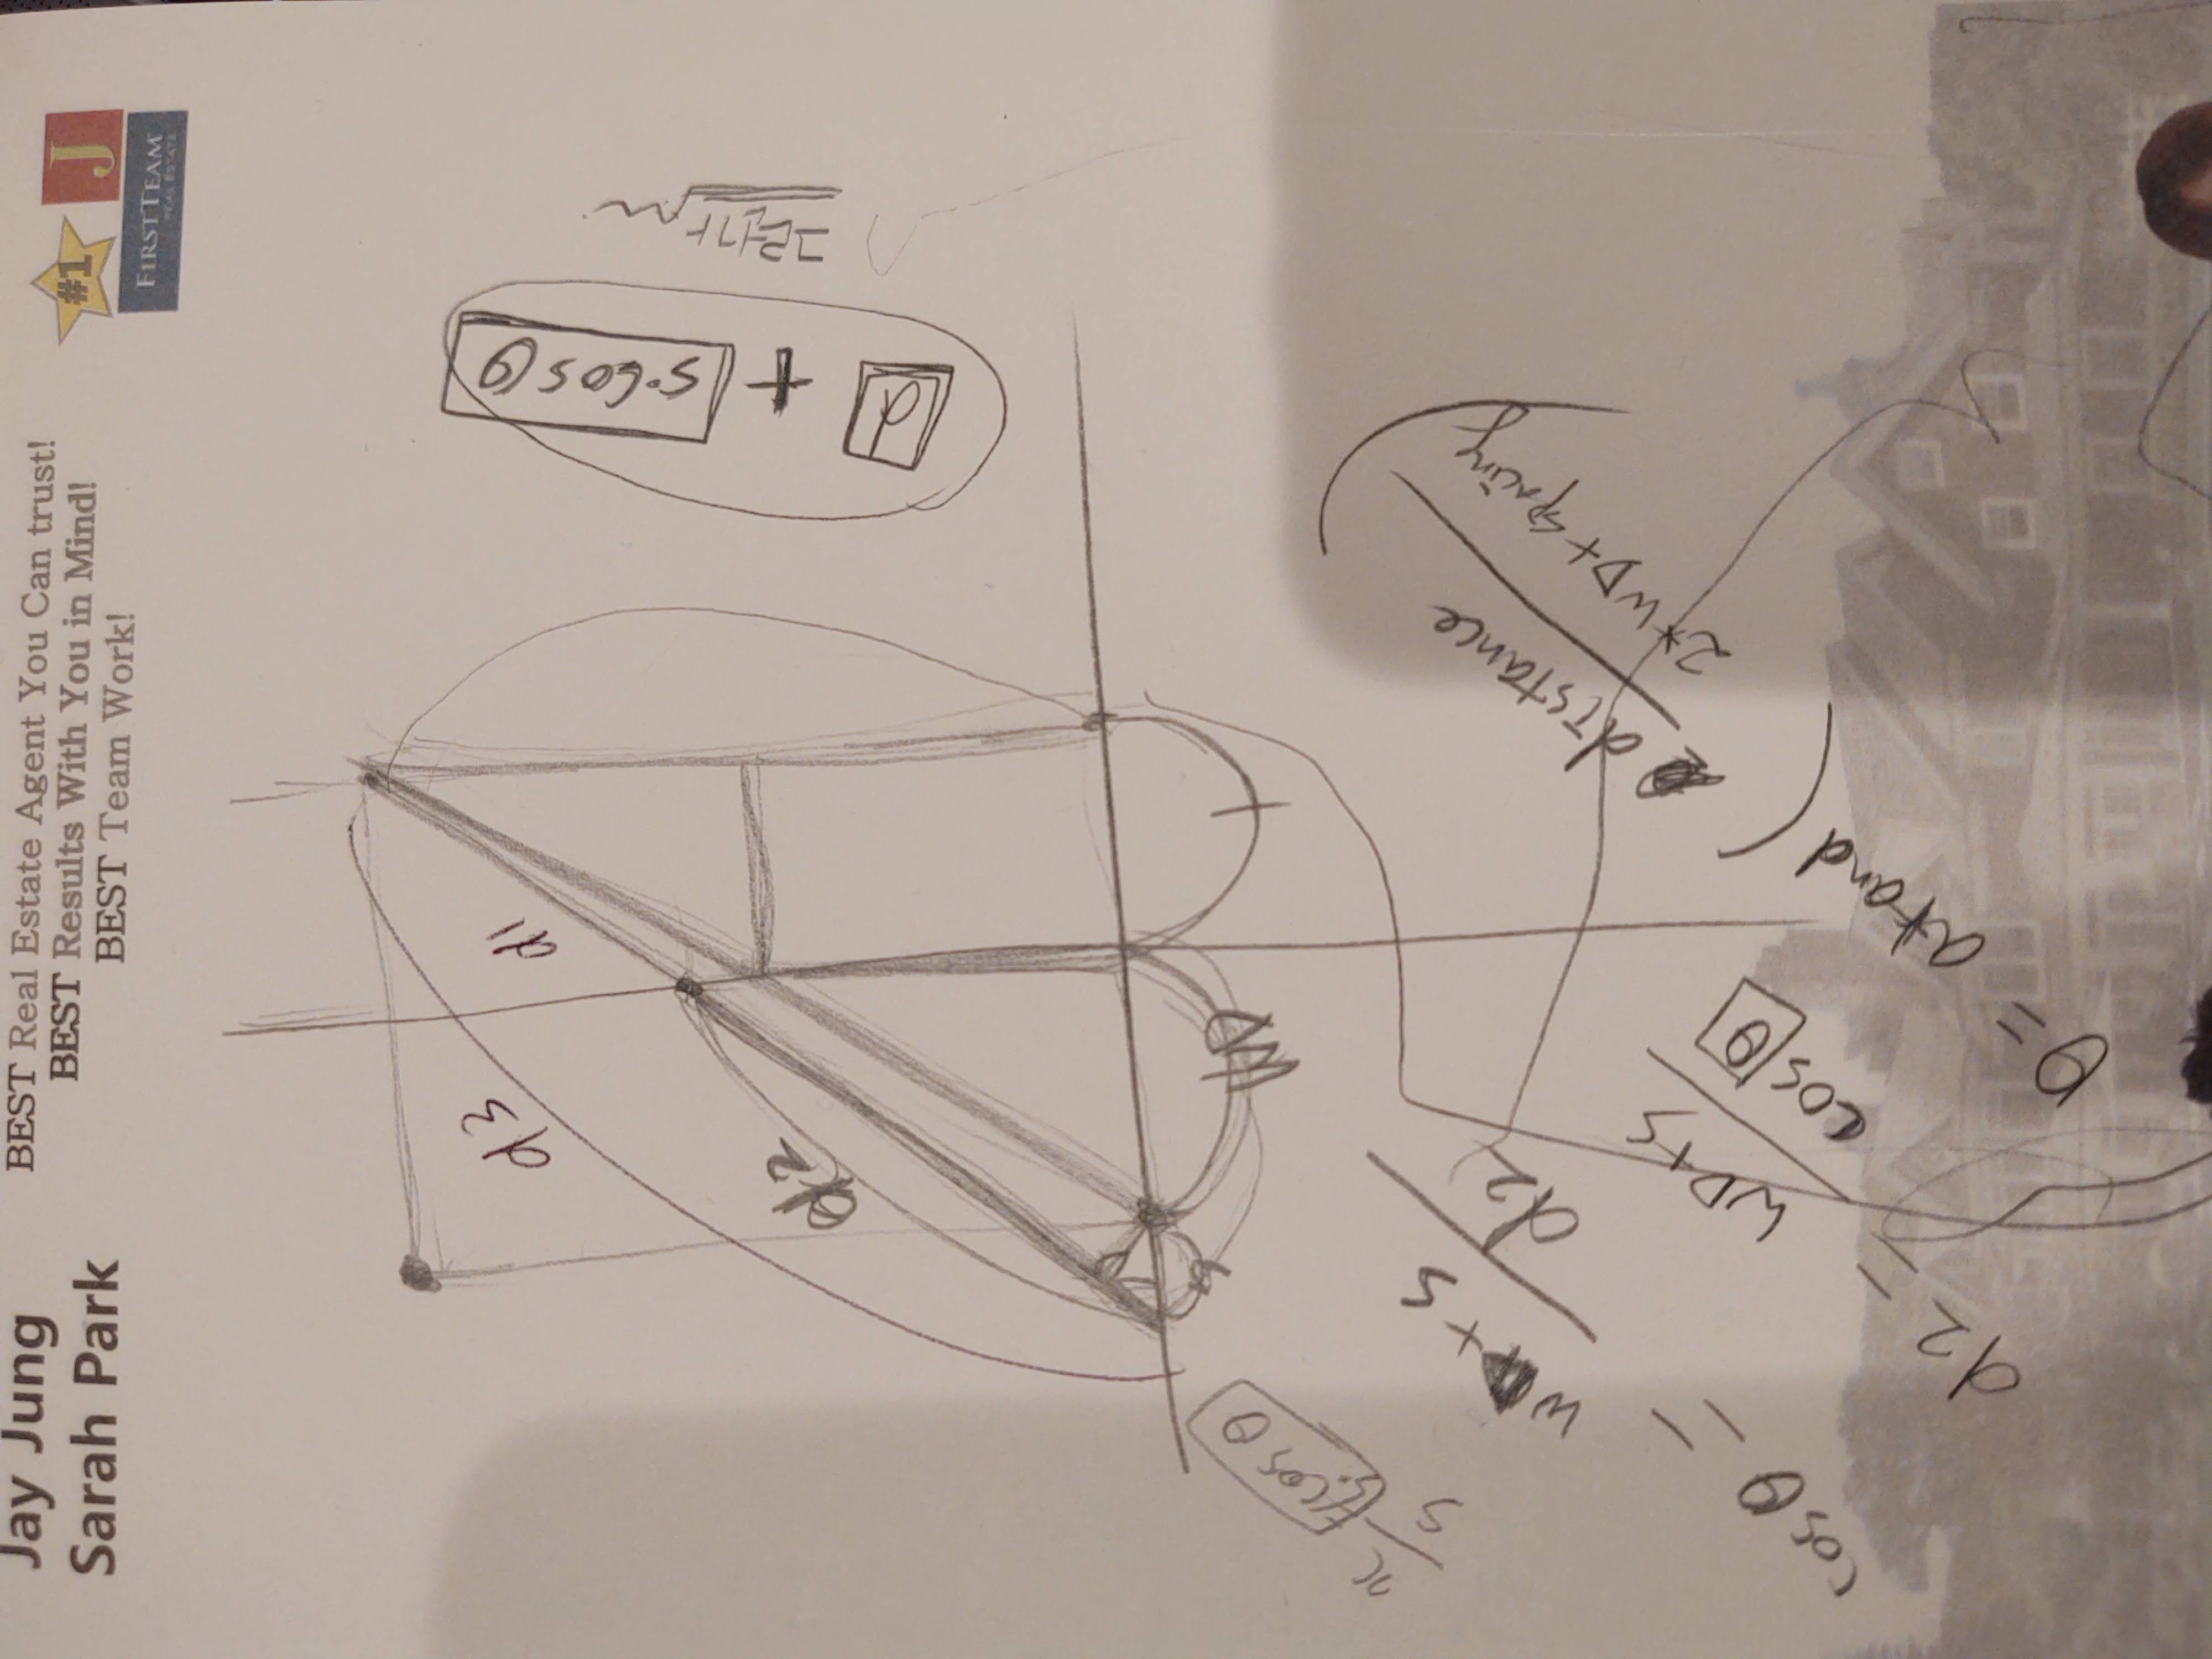 Jay Jung
Sarah Park
BEST Real Estate Agent You Can trust!
BEST Results With You in Mind!
BEST Team Work!
#1
J
FIRSTTEAM
REAL ESTATE
d3
d1
d2
d + s·cosθ
그런가
s
WD
x
s
s·cosθ
cosθ = WD+s / d2
d2 = WD+s / cosθ
θ = atand( distance / 2*WD+spacing )